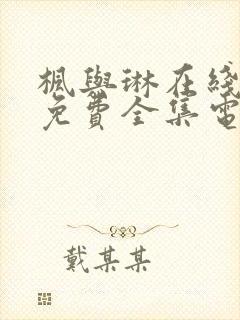 楓與琳在綫
免費全集電
戴某某